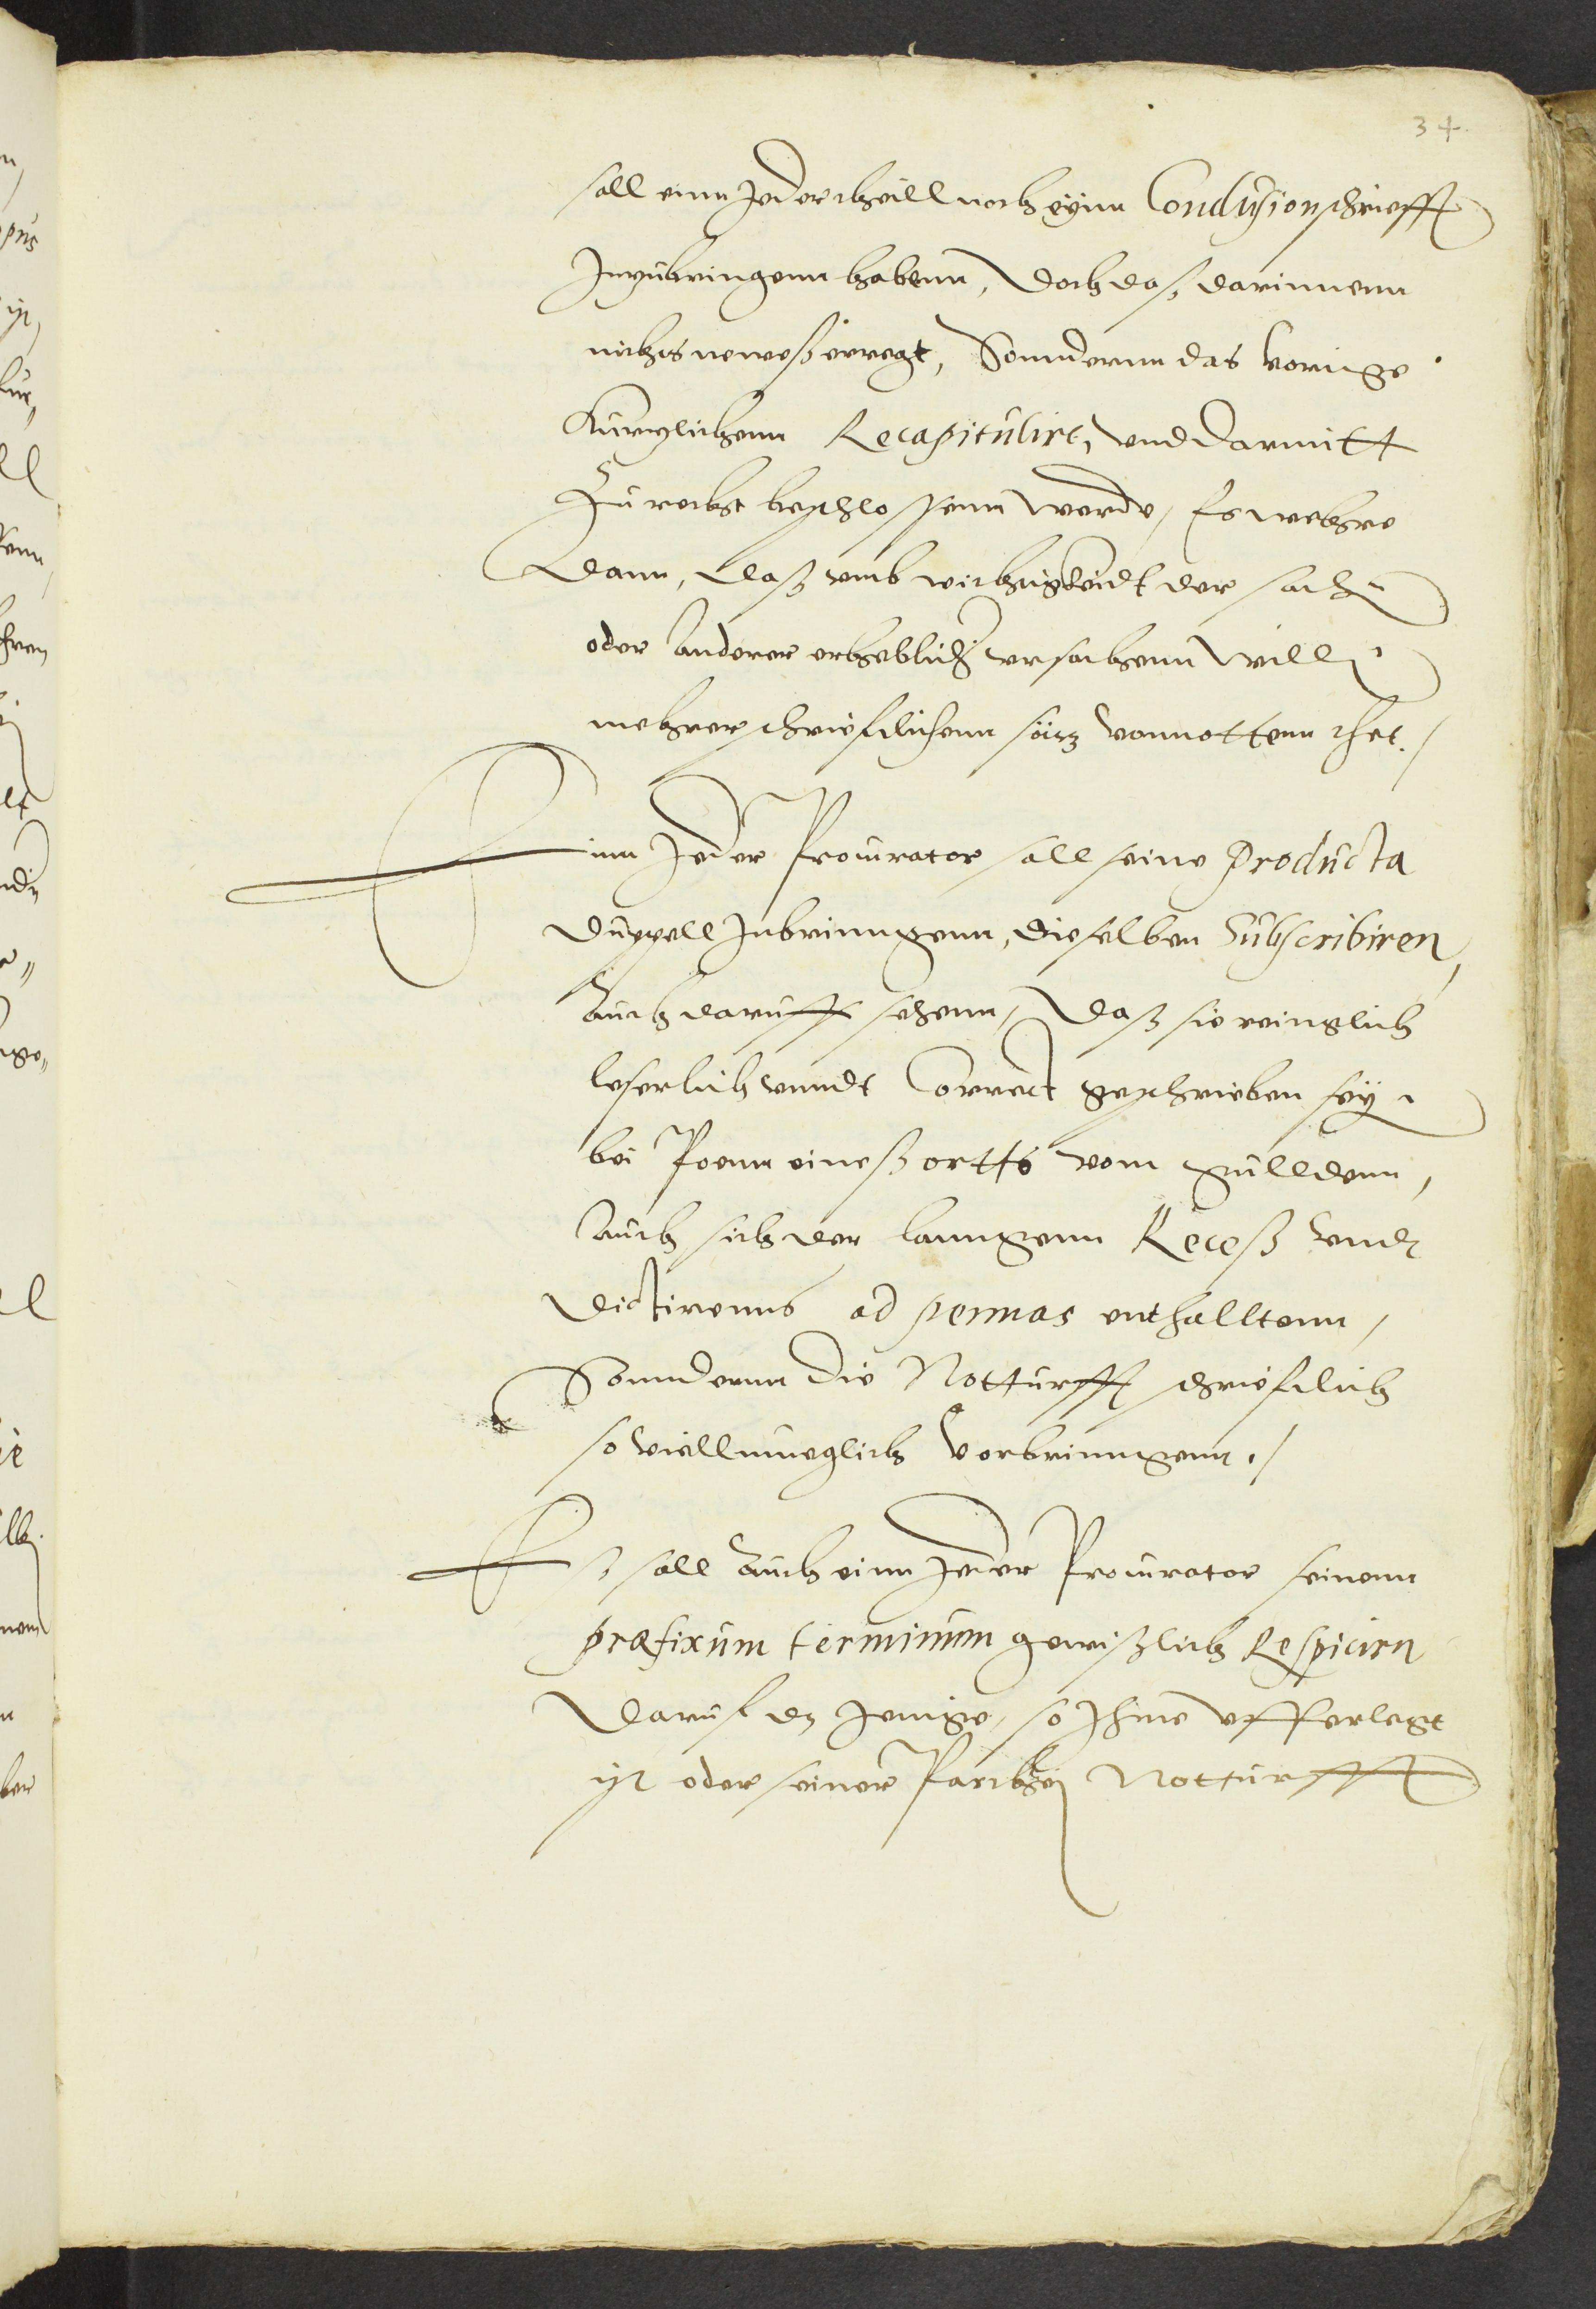 34.
sall einn Jeder theill noch eynn Conclusion schriefft
Inzubringenn habenn, Doch daß darinnenn
nichts neweß erregt, Sonndernn das vorige
Kurtzlichenn Recapitulirt, und darmitt
Zu recht beschlossenn werde, Es wehre
Dann, daß umb wichtigkeidt der sach
oder Anderer erheblich ursachenn will
mehrer schriefdlichenn satz vonnottenn thet./
Einn Jeder Procurator sall seine Producta
Duppell Inbrinngenn, dieselben Subscribiren,
Auch daruff sehenn, daß sie reinglich
leserlich unndt Correct geschrieben sey
bei Poenn eineß ortts vom gulldenn,
Auch sich der lanngenn Receß vnd
dictirenns ad pennas enthalltenn,
Sonndernn die Notturfft schriefdlich
so viell mueglich vorbrinngenn./
Eß sall Auch einn Jeder Procurator seinenn
præfixum terminum gewißlich Respicirn
Daruf dz Jenige, so Ihme ufferlegt
ist oder seiner Parthei Notturfft